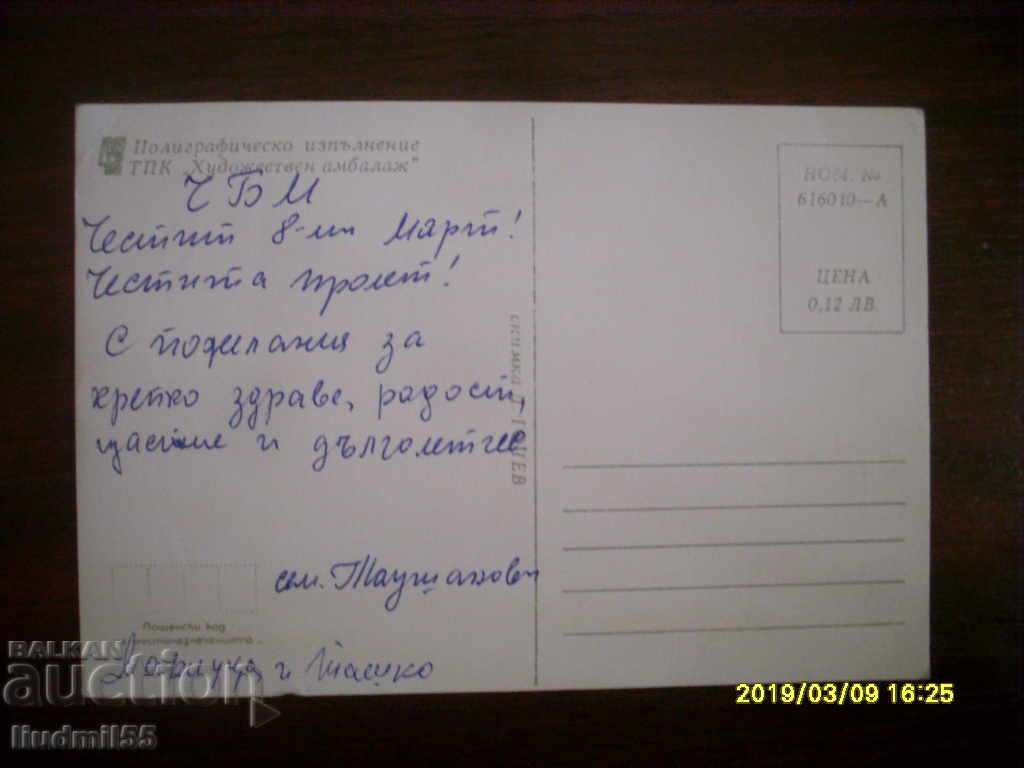 Полиграфическо изпълнение
ТПК „Художествен амбалаж"
ЧБМ
Честит 8-ми Март!
Честита пролет!
С пожелания за
крепко здраве, радост,
щастие и дълголетие
сем. Таушанови
и Ташко
Пощенски код
местоназначението
снимка Г. ГОЦЕВ
НОМ. №
616010—А
ЦЕНА
0,12 ЛВ.
BALKAN
auction
liudmil55
2019/03/09 16:25